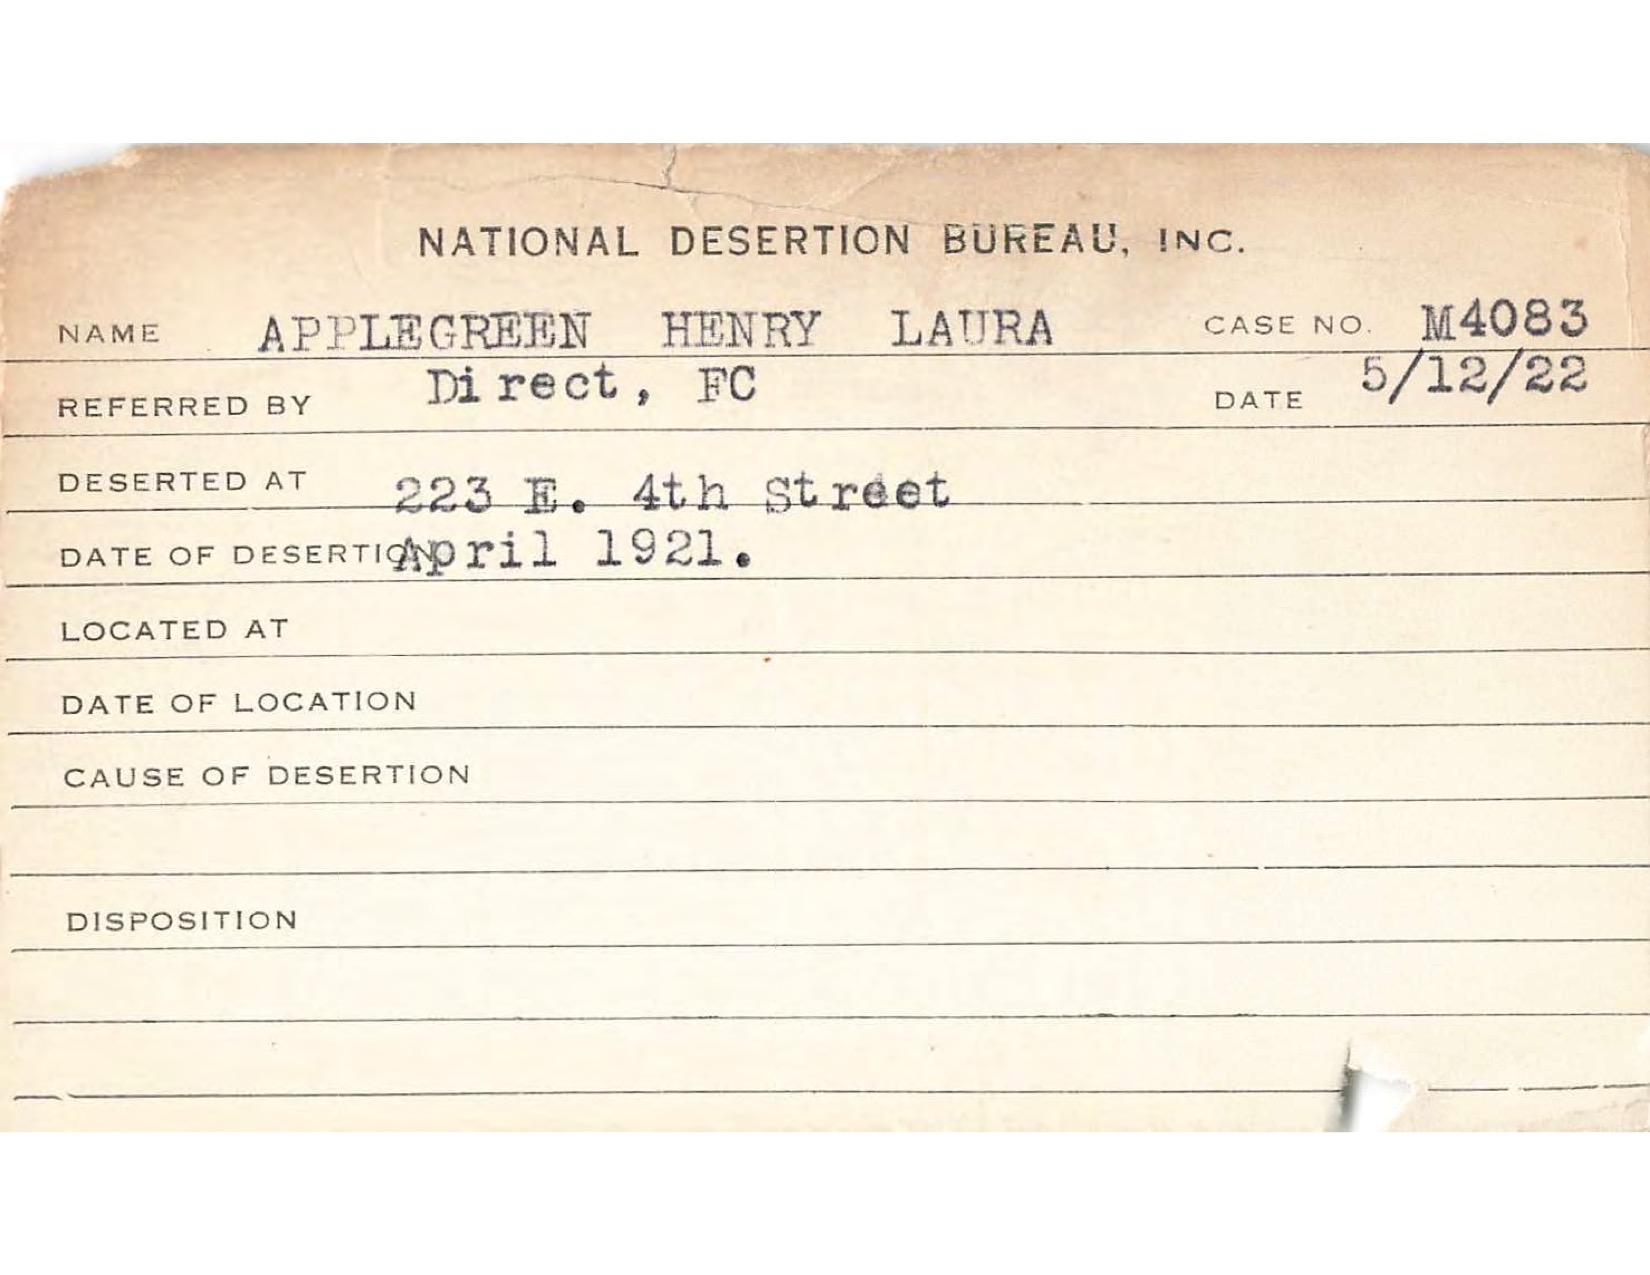 NATIONAL DESERTION BUREAU, INC.
NAME APPLEGREEN HENRY LAURA CASE NO. M4083
REFERRED BY Direct, FC DATE 5/12/22
DESERTED AT 223 E. 4th Street
DATE OF DESERTION April 1921.
LOCATED AT
DATE OF LOCATION
CAUSE OF DESERTION
DISPOSITION